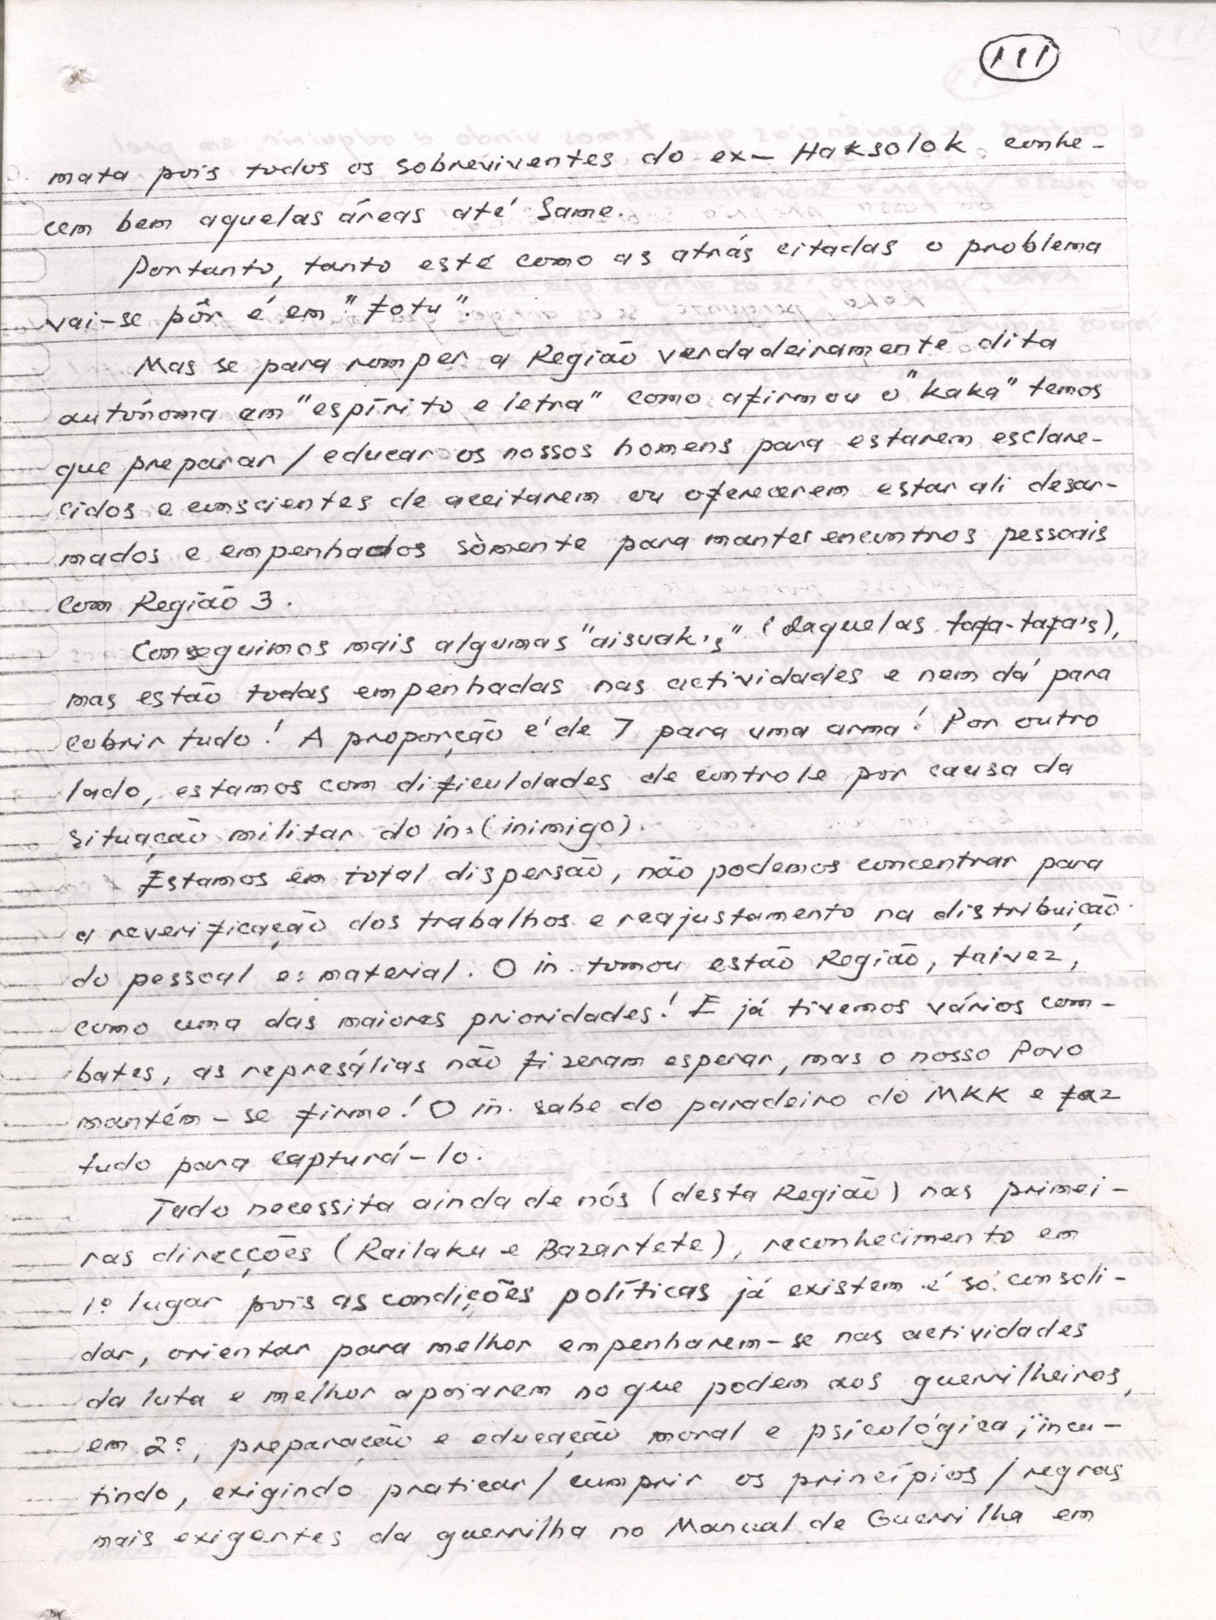 111
mata pois todos os sobreviventes do ex-Haksolok conhe-
cem bem aquelas áreas até Same.
Portanto, tanto esté como as atrás citadas o problema
vai-se pôr é em "fotu".
Mas se para romper a Região verdadeiramente dita
autónoma em "espírito e letra" como afirmou o "kaka" temos
que preparar/educar os nossos homens para estarem esclare-
cidos e conscientes de aceitarem ou oferecerem estar ali desar-
mados e empenhados sòmente para manter encontros pessoais
com Região 3.
Conseguimos mais algumas "aisuak's" (daquelas tafa-tafa's),
mas estão todas empenhadas nas actividades e nem dá para
cobrir tudo! A proporção é de 7 para uma arma! Por outro
lado, estamos com dificuldades de controle por causa da
situação militar do in. (inimigo).
Estamos em total dispersão, não podemos concentrar para
a reverificação dos trabalhos e reajustamento na distribuição
do pessoal e material. O in. tomou estão Região, talvez,
como uma das maiores prioridades! E já tivemos vários com-
bates, as represálias não fizeram esperar, mas o nosso Povo
mantém-se firme! O in. sabe do paradeiro do MKK e faz
tudo para capturá-lo.
Tudo necessita ainda de nós (desta Região) nas primei-
ras direcções (Railaku e Bazartete), reconhecimento em
1º lugar pois as condições políticas já existem é só consoli-
dar, orientar para melhor empenharem-se nas actividades
da luta e melhor apoiarem no que podem aos guerrilheiros,
em 2º, preparação e educação moral e psicológica, incu-
tindo, exigindo praticar/cumprir os princípios/regras
mais exigentes da guerrilha no Manual de Guerrilha em